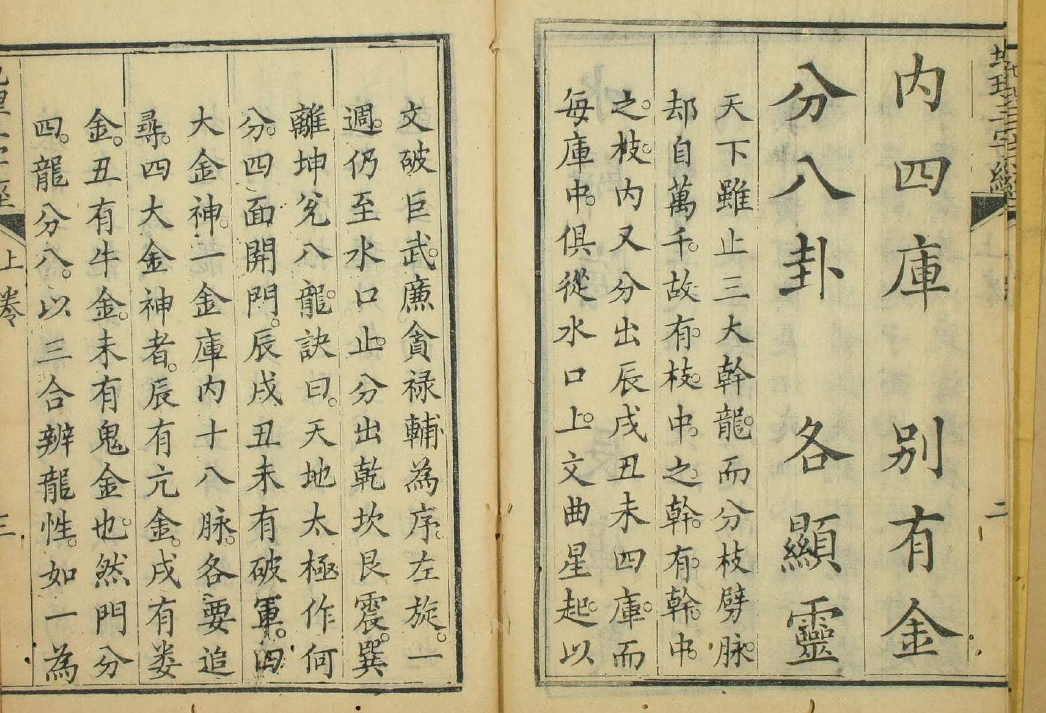 內四庫別有金
分八卦各顯靈
天下雖止三大幹龍而分枝劈脉
却自萬千故有枝中之幹有幹中
之枝內又分出辰戌丑未四庫而
每庫中俱從水口上文曲星起以
文破巨武廉貪禄輔為序左旋一
週仍至水口止分出乾坎艮震巽
離坤兌八龍訣曰天地太極作何
分四面開門辰戌丑未有破軍四
大金神一金庫內十八脉各要追
尋四大金神者辰有亢金戌有娄
金丑有牛金未有鬼金也然門分
四龍分八以三合辨龍性如一為
上卷
三